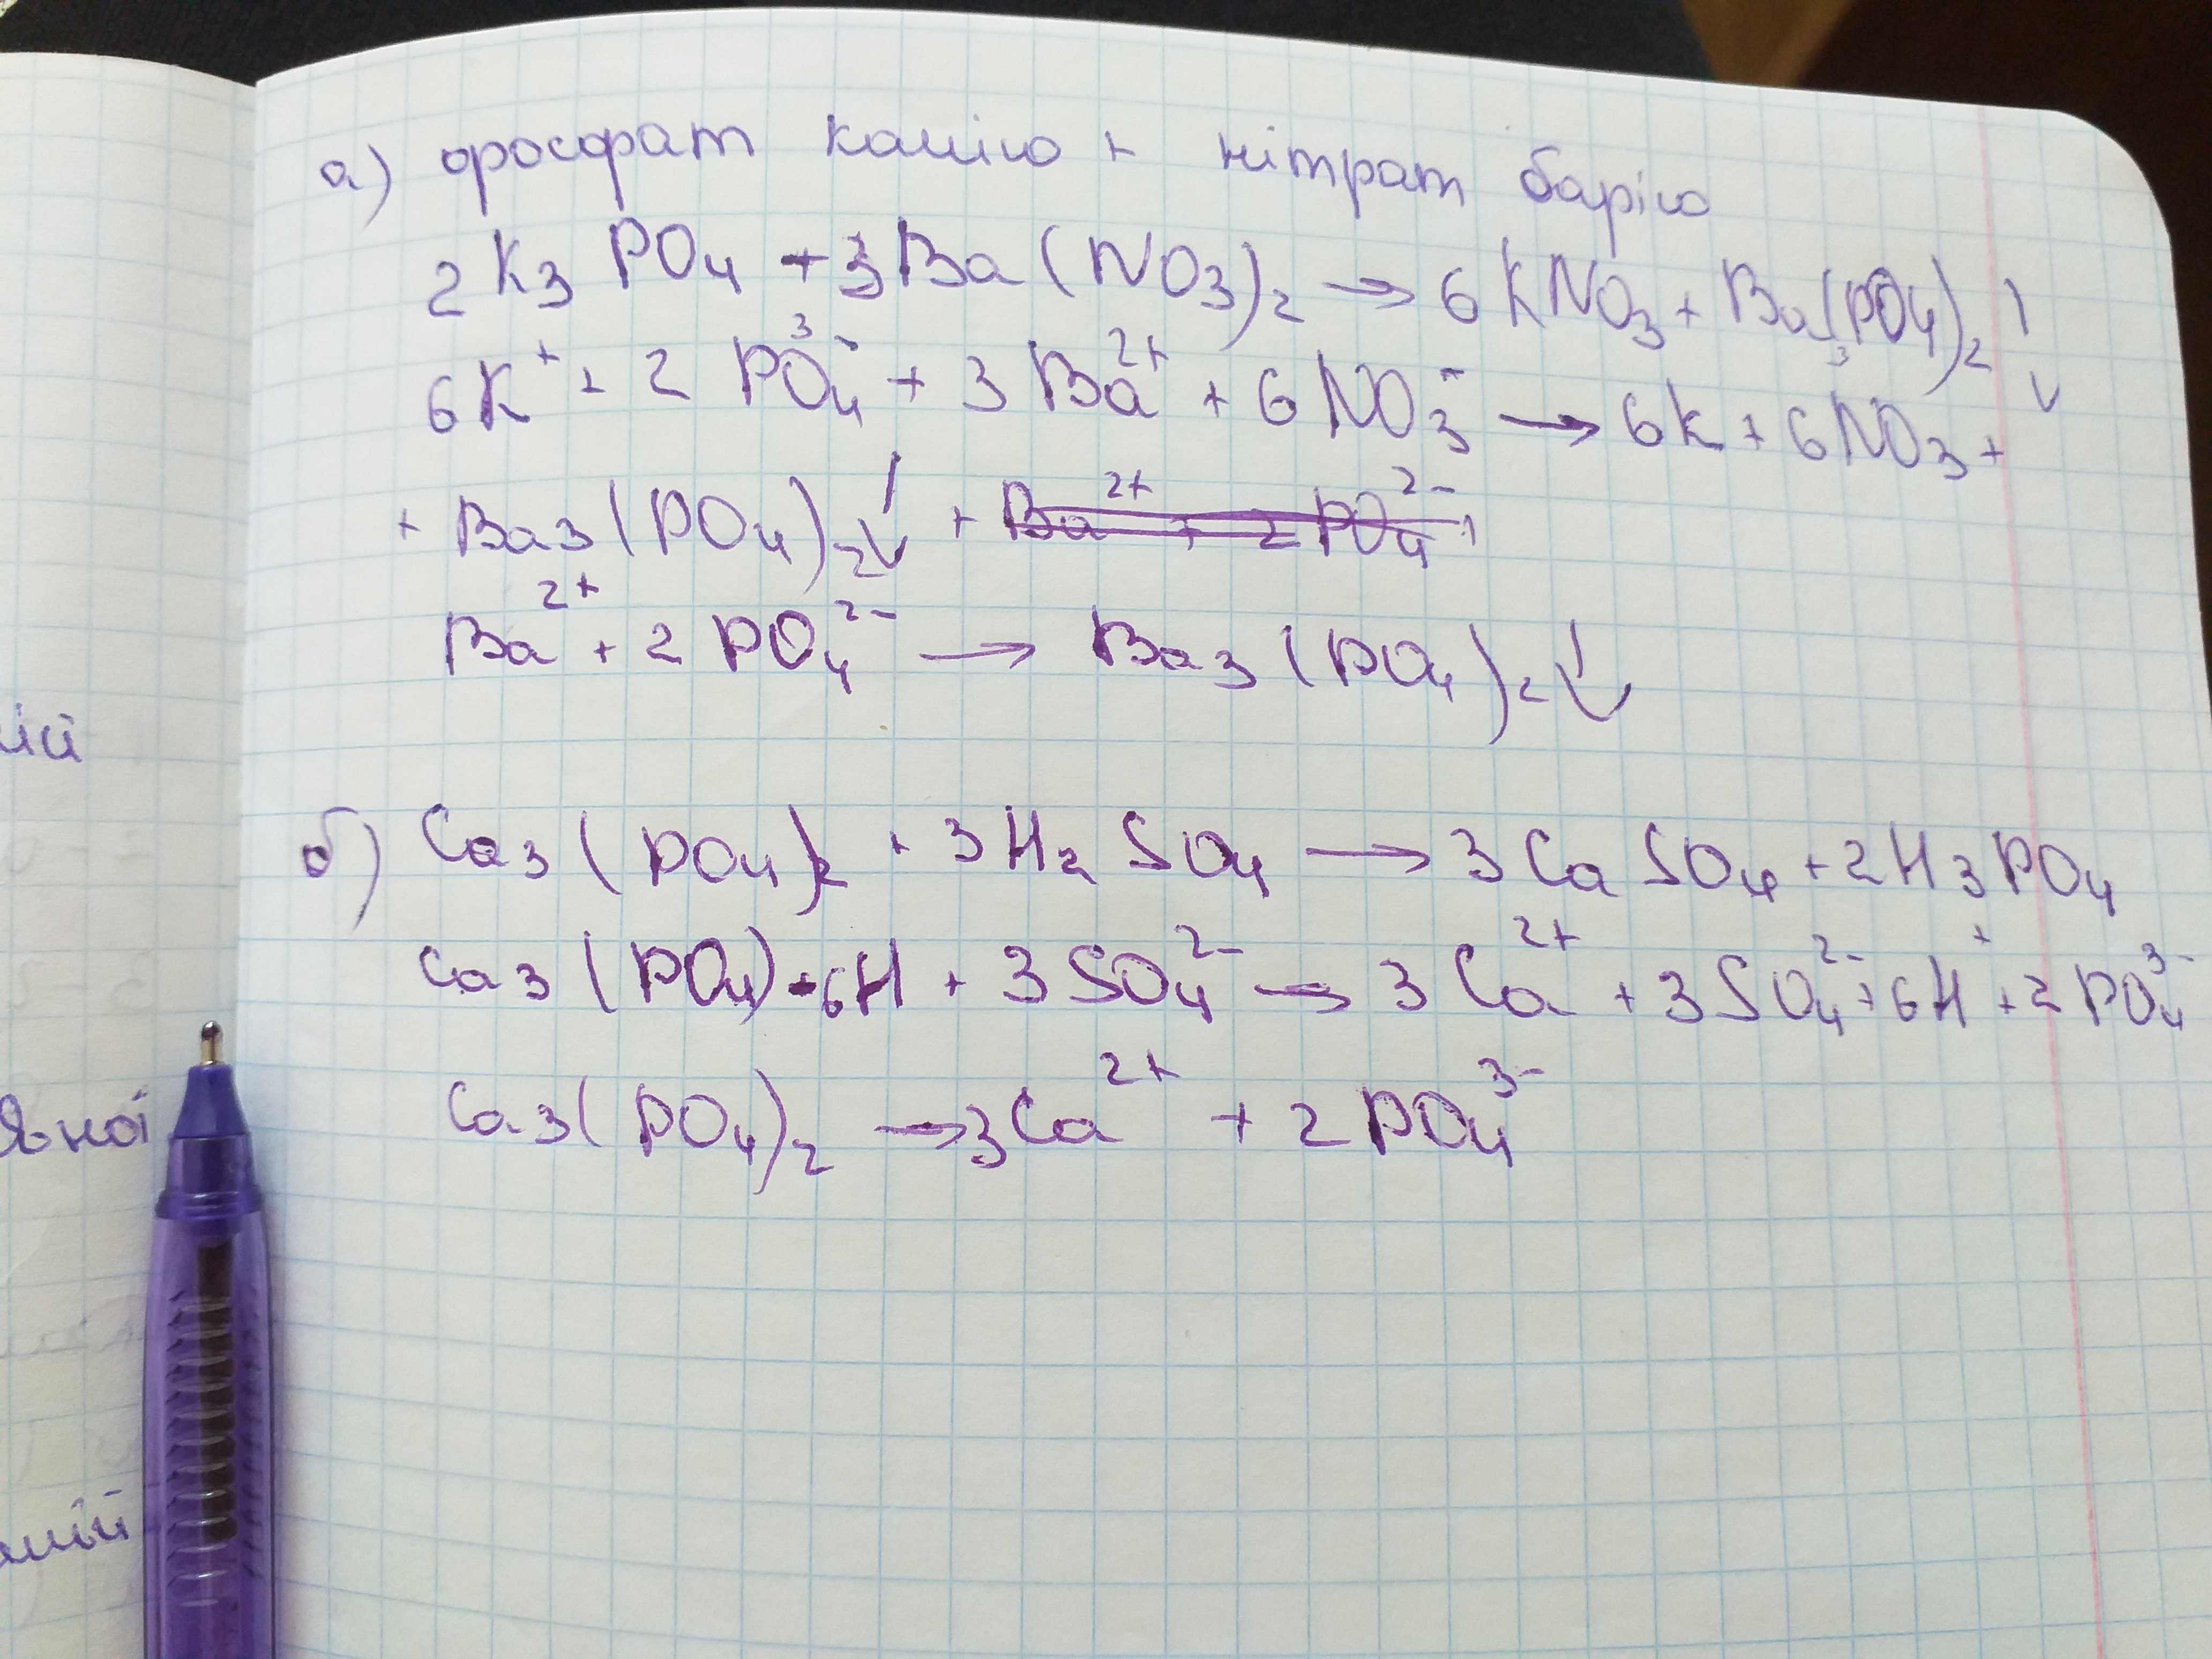 а) фосфат калію + нітрат барію
2K₃PO₄ + 3Ba(NO₃)₂ → 6KNO₃ + Ba₃(PO₄)₂↓
6K⁺ + 2PO₄³⁻ + 3Ba²⁺ + 6NO₃⁻ → 6K + 6NO₃ +
+ Ba₃(PO₄)₂↓ + Ba²⁺ + 2PO₄²⁻
Ba²⁺ + 2PO₄²⁻ → Ba₃(PO₄)₂↓
ій
б) Ca₃(PO₄)₂ + 3H₂SO₄ → 3CaSO₄ + 2H₃PO₄
Ca₃(PO₄) + 6H + 3SO₄²⁻ → 3Ca²⁺ + 3SO₄²⁻ + 6H⁺ + 2PO₄³⁻
Ca₃(PO₄)₂ → 3Ca²⁺ + 2PO₄³⁻